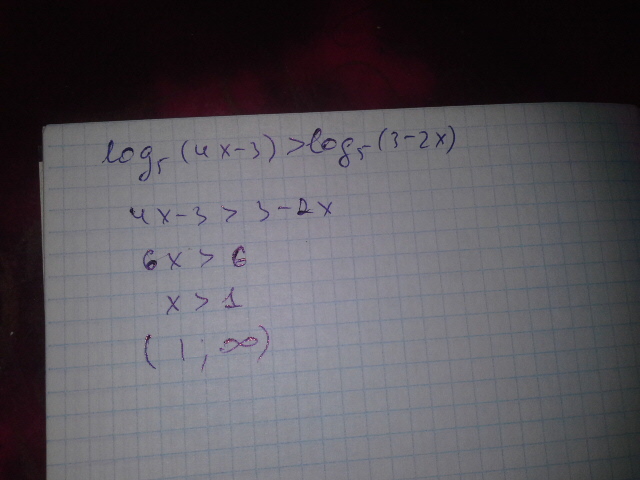 log₅(4x-3)>log₅(3-2x)
4x-3>3-2x
6x>6
x>1
(1;∞)